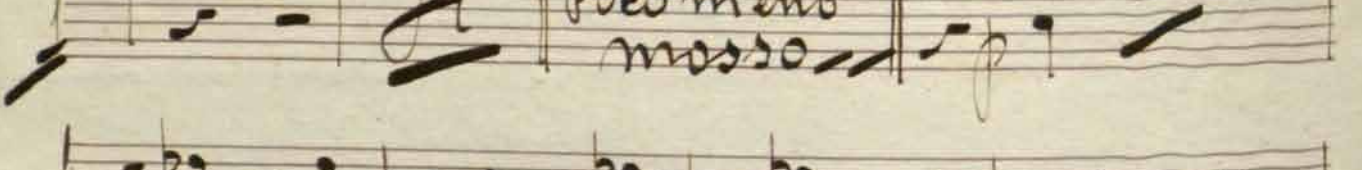 Poco meno
mosso
p